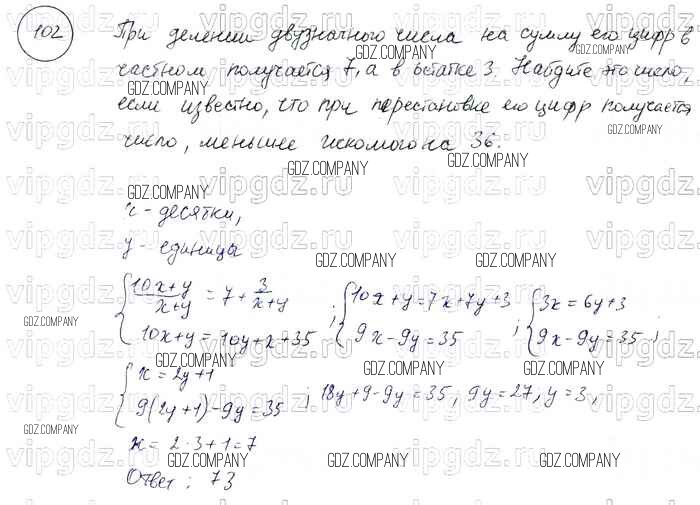 102
При делении двузначного числа на сумму его цифр в
частном получается 7, а в остатке 3. Найдите это число,
если известно, что при перестановке его цифр получается
число, меньшее искомого на 36.
x - десятки,
y - единицы
{ (10x+y)/(x+y) = 7 + 3/(x+y) ; { 10x+y=7x+7y+3 ; { 3x=6y+3 ;
10x+y=10y+x+35 9x-9y=35 9x-9y=35
{ x=2y+1
9(2y+1)-9y=35 ; 18y+9-9y=35, 9y=27, y=3,
x= 2·3+1=7
Ответ: 73
GDZ.COMPANY
vipgdz.ru